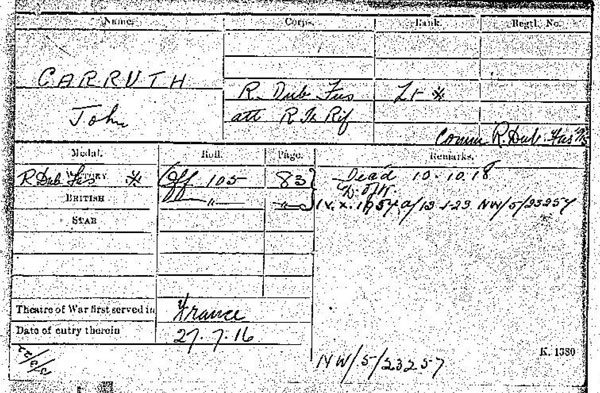 Name. Corps. Rank. Regtl. No.
CARRUTH R. Dub. Fus Lt *
John att R. Ir. Rif
Comm R. Dub. Fus
Medal. Roll. Page. Remarks.
VICTORY R. Dub Fus * Off 105 83 Dead 10.10.18
BRITISH " "
IV.X. 1954 a/ NW/5/23257
STAR
Theatre of War first served in France
Date of entry therein 27.7.16
K. 1380
NW/5/23257